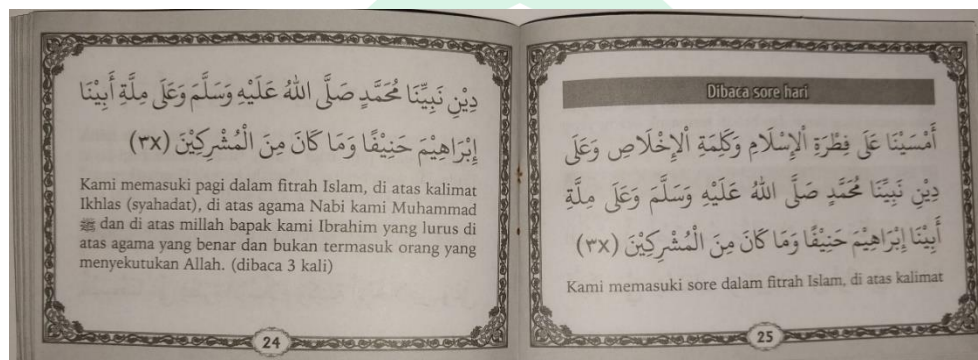 دِيْنِ نَبِيِّنَا مُحَمَّدٍ صَلَّى اللهُ عَلَيْهِ وَسَلَّمَ وَعَلَى مِلَّةِ أَبِيْنَا
إِبْرَاهِيْمَ حَنِيْفًا وَمَا كَانَ مِنَ الْمُشْرِكِيْنَ (٣x)
Kami memasuki pagi dalam fitrah Islam, di atas kalimat
Ikhlas (syahadat), di atas agama Nabi kami Muhammad
ﷺ dan di atas millah bapak kami Ibrahim yang lurus di
atas agama yang benar dan bukan termasuk orang yang
menyekutukan Allah. (dibaca 3 kali)
24
Dibaca sore hari
أَمْسَيْنَا عَلَى فِطْرَةِ الْإِسْلَامِ وَكَلِمَةِ الْإِخْلَاصِ وَعَلَى
دِيْنِ نَبِيِّنَا مُحَمَّدٍ صَلَّى اللهُ عَلَيْهِ وَسَلَّمَ وَعَلَى مِلَّةِ
أَبِيْنَا إِبْرَاهِيْمَ حَنِيْفًا وَمَا كَانَ مِنَ الْمُشْرِكِيْنَ (٣x)
Kami memasuki sore dalam fitrah Islam, di atas kalimat
25